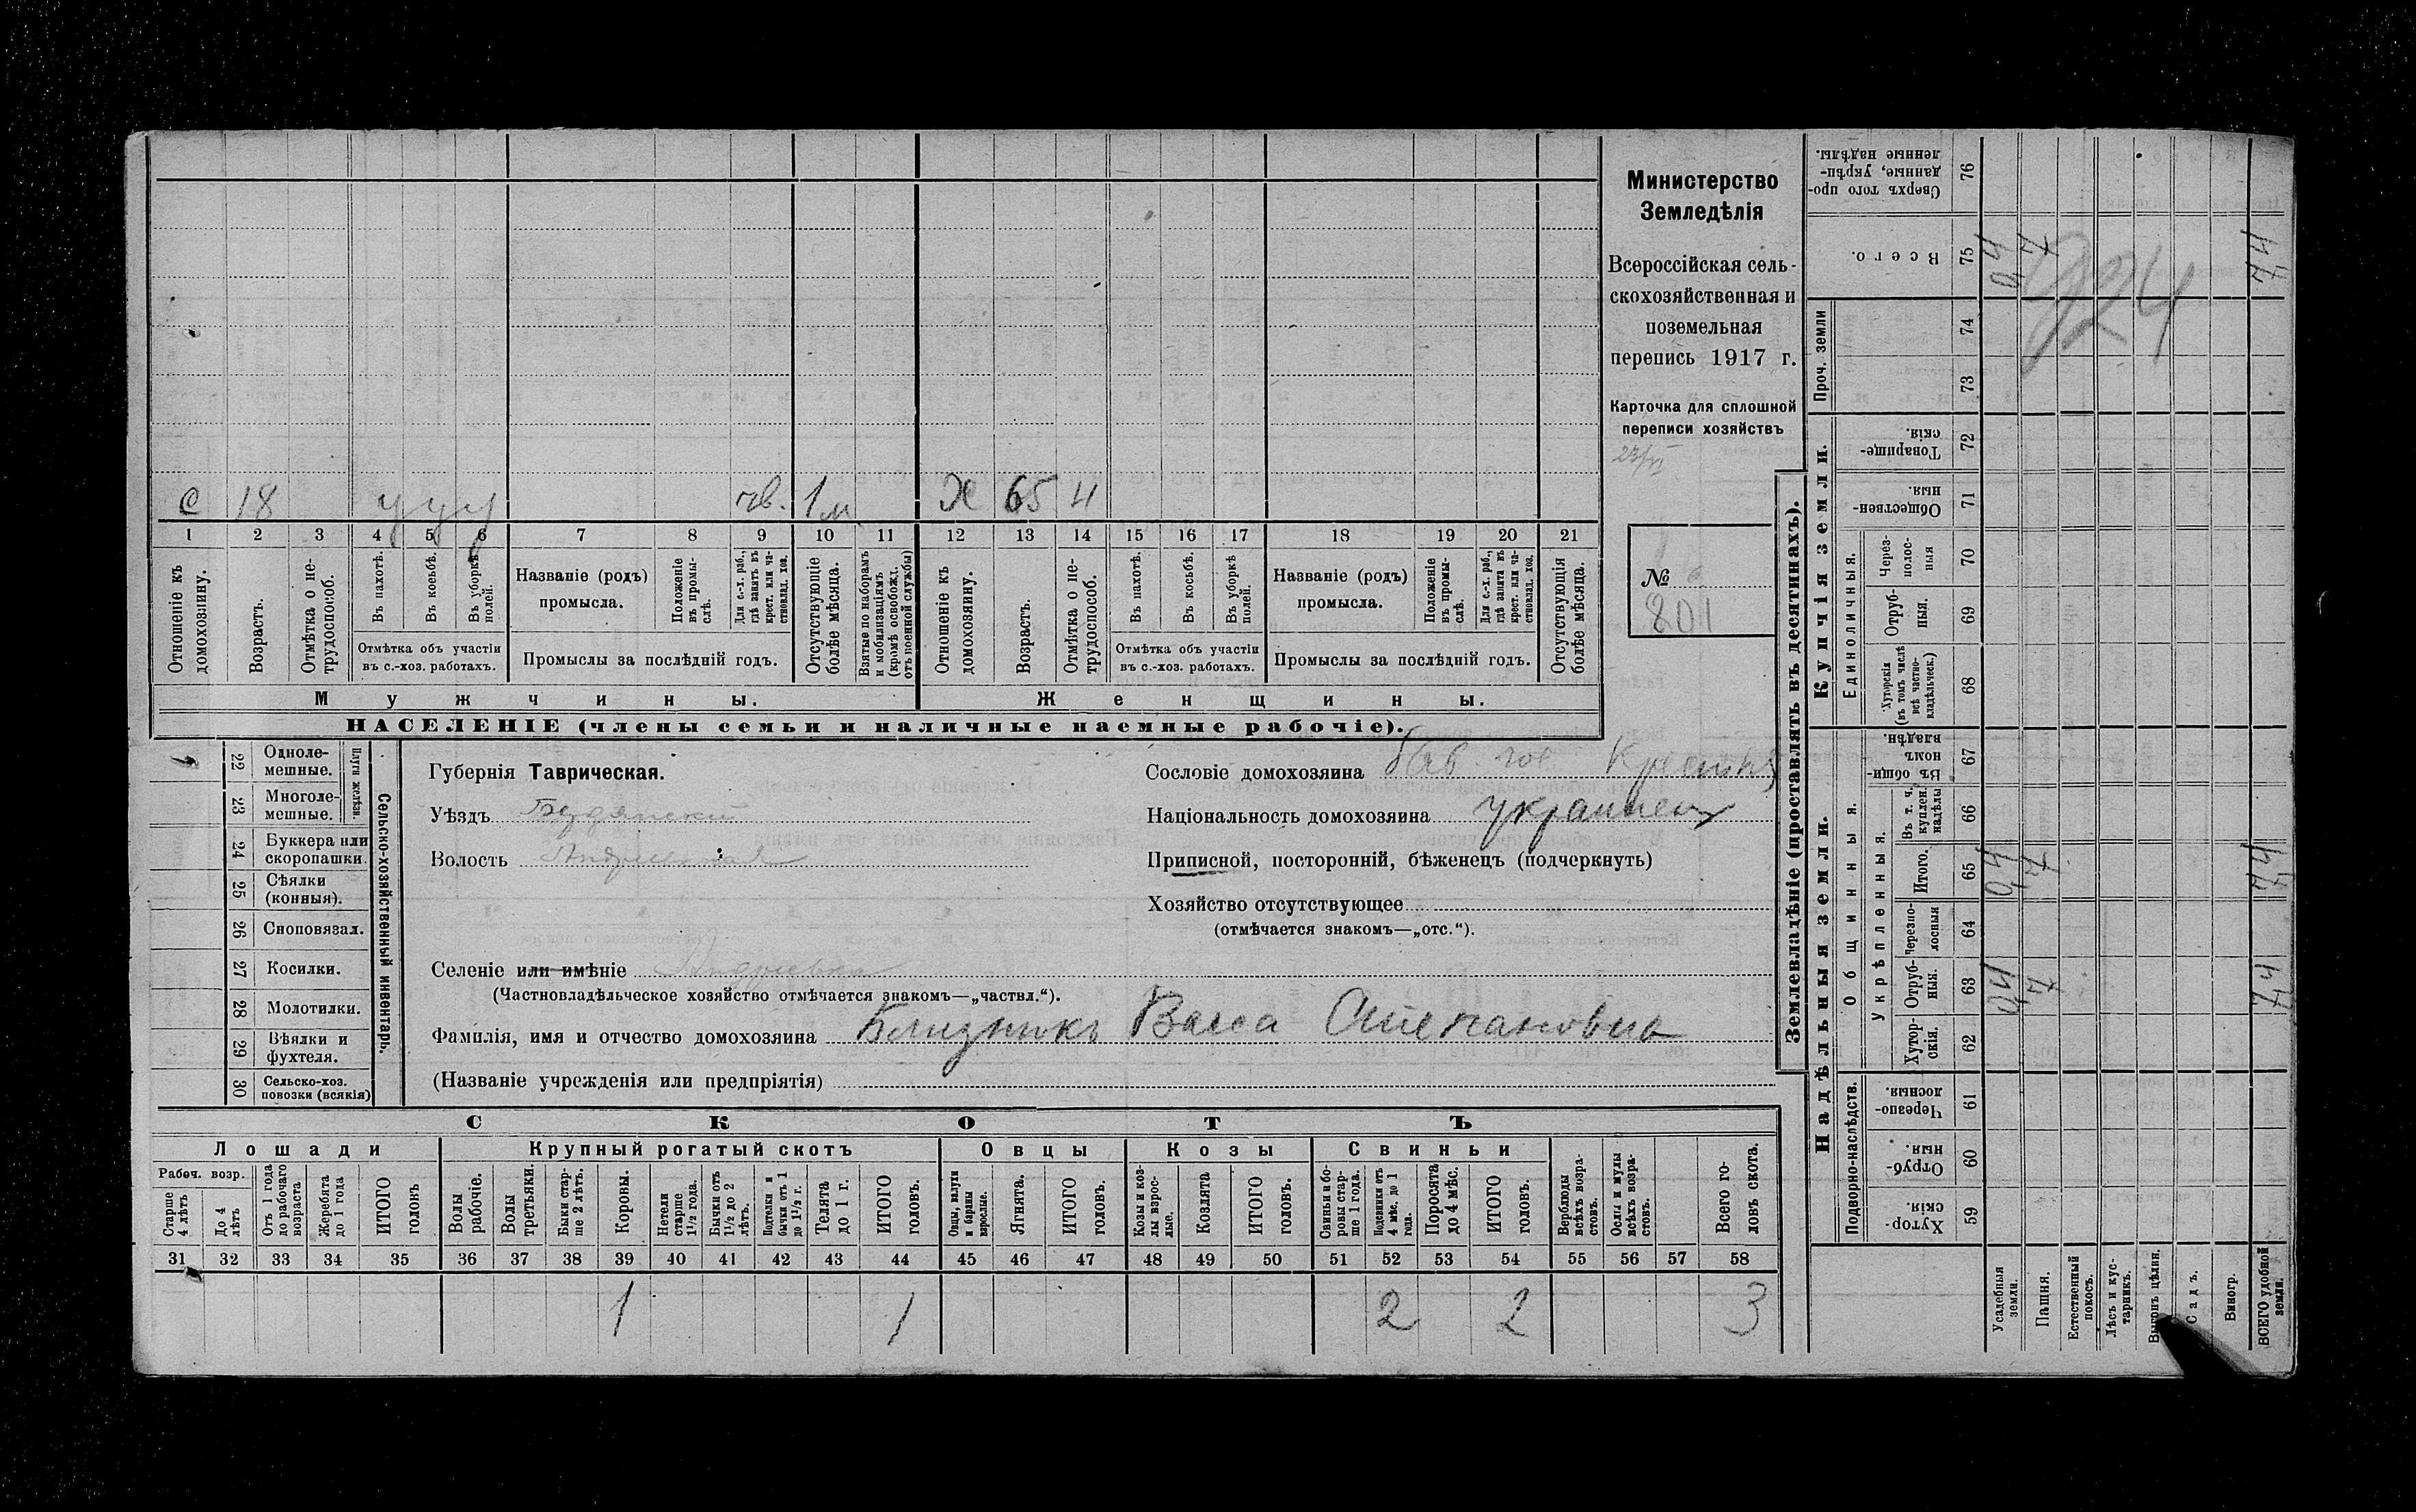 С 18 у у у чв. 1 м Х 65 Н
1 2 3 4 5 6 7 8 9 10 11 12 13 14 15 16 17 18 19 20 21
Отношеніе къ домохозяину.
Возрастъ.
Отмѣтка о не-трудоспособ.
Въ пахотѣ.
Въ косьбѣ.
Въ уборкѣ полей.
Отмѣтка объ участіи въ с.-хоз. работахъ.
Названіе (родъ) промысла.
Положеніе въ промы-слѣ.
Для с.-х. раб., гдѣ занятъ въ крест. или ча-стновлад. хоз.
Промыслы за послѣдній годъ.
Отсутствующіе болѣе мѣсяца.
Взятые по наборамъ и мобилизаціямъ (кромѣ освобожд. отъ военной службы)
Отношеніе къ домохозяину.
Возрастъ.
Отмѣтка о не-трудоспособ.
Въ пахотѣ.
Въ косьбѣ.
Въ уборкѣ полей.
Отмѣтка объ участіи въ с.-хоз. работахъ.
Названіе (родъ) промысла.
Положеніе въ промы-слѣ.
Для с.-х. раб., гдѣ занята въ крест. или ча-стновлад. хоз.
Промыслы за послѣдній годъ.
Отсутствующія болѣе мѣсяца.
Мужчины. Женщины.
НАСЕЛЕНІЕ (члены семьи и наличные наемные рабочіе).
Министерство
Земледѣлія
Всероссійская сель-
скохозяйственная и
поземельная
перепись 1917 г.
Карточка для сплошной
переписи хозяйствъ
23/VI
№
201
22 Одноле-мешные.
23 Многоле-мешные.
Плуги желѣзн.
24 Буккера или скоропашки.
25 Сѣялки (конныя).
26 Сноповязал.
27 Косилки.
28 Молотилки.
29 Вѣялки и фухтеля.
30 Сельско-хоз. повозки (всякія)
Сельско-хозяйственный инвентарь.
Губернія Таврическая.
Уѣздъ
Волость
Селеніе или имѣніе Андреевка
(Частновладѣльческое хозяйство отмѣчается знакомъ—„частвл.“).
Фамилія, имя и отчество домохозяина Близнюкъ Васса Степановна
(Названіе учрежденія или предпріятія)
Сословіе домохозяина
Національность домохозяина украинец
Приписной, посторонній, бѣженец (подчеркнуть)
Хозяйство отсутствующее
(отмѣчается знакомъ—„отс.“).
СКОТЪ
Лошади Крупный рогатый скотъ Овцы Козы Свиньи
Рабоч. возр.
Старше 4 лѣтъ
До 4 лѣтъ
Отъ 1 года до рабочаго возраста
Жеребята до 1 года
ИТОГО головъ
Волы рабочіе.
Волы третьяки.
Быки стар-ше 2 лѣтъ.
Коровы.
Нетели старше 1½ года.
Бычки отъ 1½ до 2 лѣтъ.
Подтелки и бычки отъ 1 до 1½ г.
Телята до 1 г.
ИТОГО головъ.
Овцы, валухи и бараны взрослые.
Ягнята.
ИТОГО головъ.
Козы и коз-лы взрос-лые.
Козлята
ИТОГО головъ.
Свиньи и бо-ровы стар-ше 1 года.
Подсвинки отъ 4 мѣс. до 1 года.
Поросята до 4 мѣс.
ИТОГО головъ.
Верблюды всѣхъ возра-стовъ.
Ослы и мулы всѣхъ возра-стовъ.
Всего го-ловъ скота.
31 32 33 34 35 36 37 38 39 40 41 42 43 44 45 46 47 48 49 50 51 52 53 54 55 56 57 58
1 1 2 2 3
Землевладѣніе (проставлять въ десятинахъ).
Надѣльныя земли. Купчія земли. Проч. земли
Подворно-наслѣдств.
Общинныя.
Укрѣпленныя.
Единоличныя.
Хутор-скія. 59
Отруб-ныя. 60
Черезпо-лосныя 61
Хутор-скія. 62
Отруб-ныя. 63
Черезпо-лосныя 64
Итого. 65
Въ т. ч. куплен. надѣлы 66
Въ общин-номъ владѣн. 67
Хуторскія (въ томъ числѣ всѣ частно-владѣльческ.) 68
Отруб-ныя. 69
Через-полос-ныя 70
Обществен-ныя. 71
Товарище-скія. 72
73
74
Всего. 75
Сверхъ того про-данные, укрѣп-ленные надѣлы. 76
Усадебныя земли.
Пашня.
Естественный покосъ.
Лѣсъ и кус-тарникъ.
Выгонъ цѣлин.
Садъ.
Виногр.
ВСЕГО удобной земли.
924